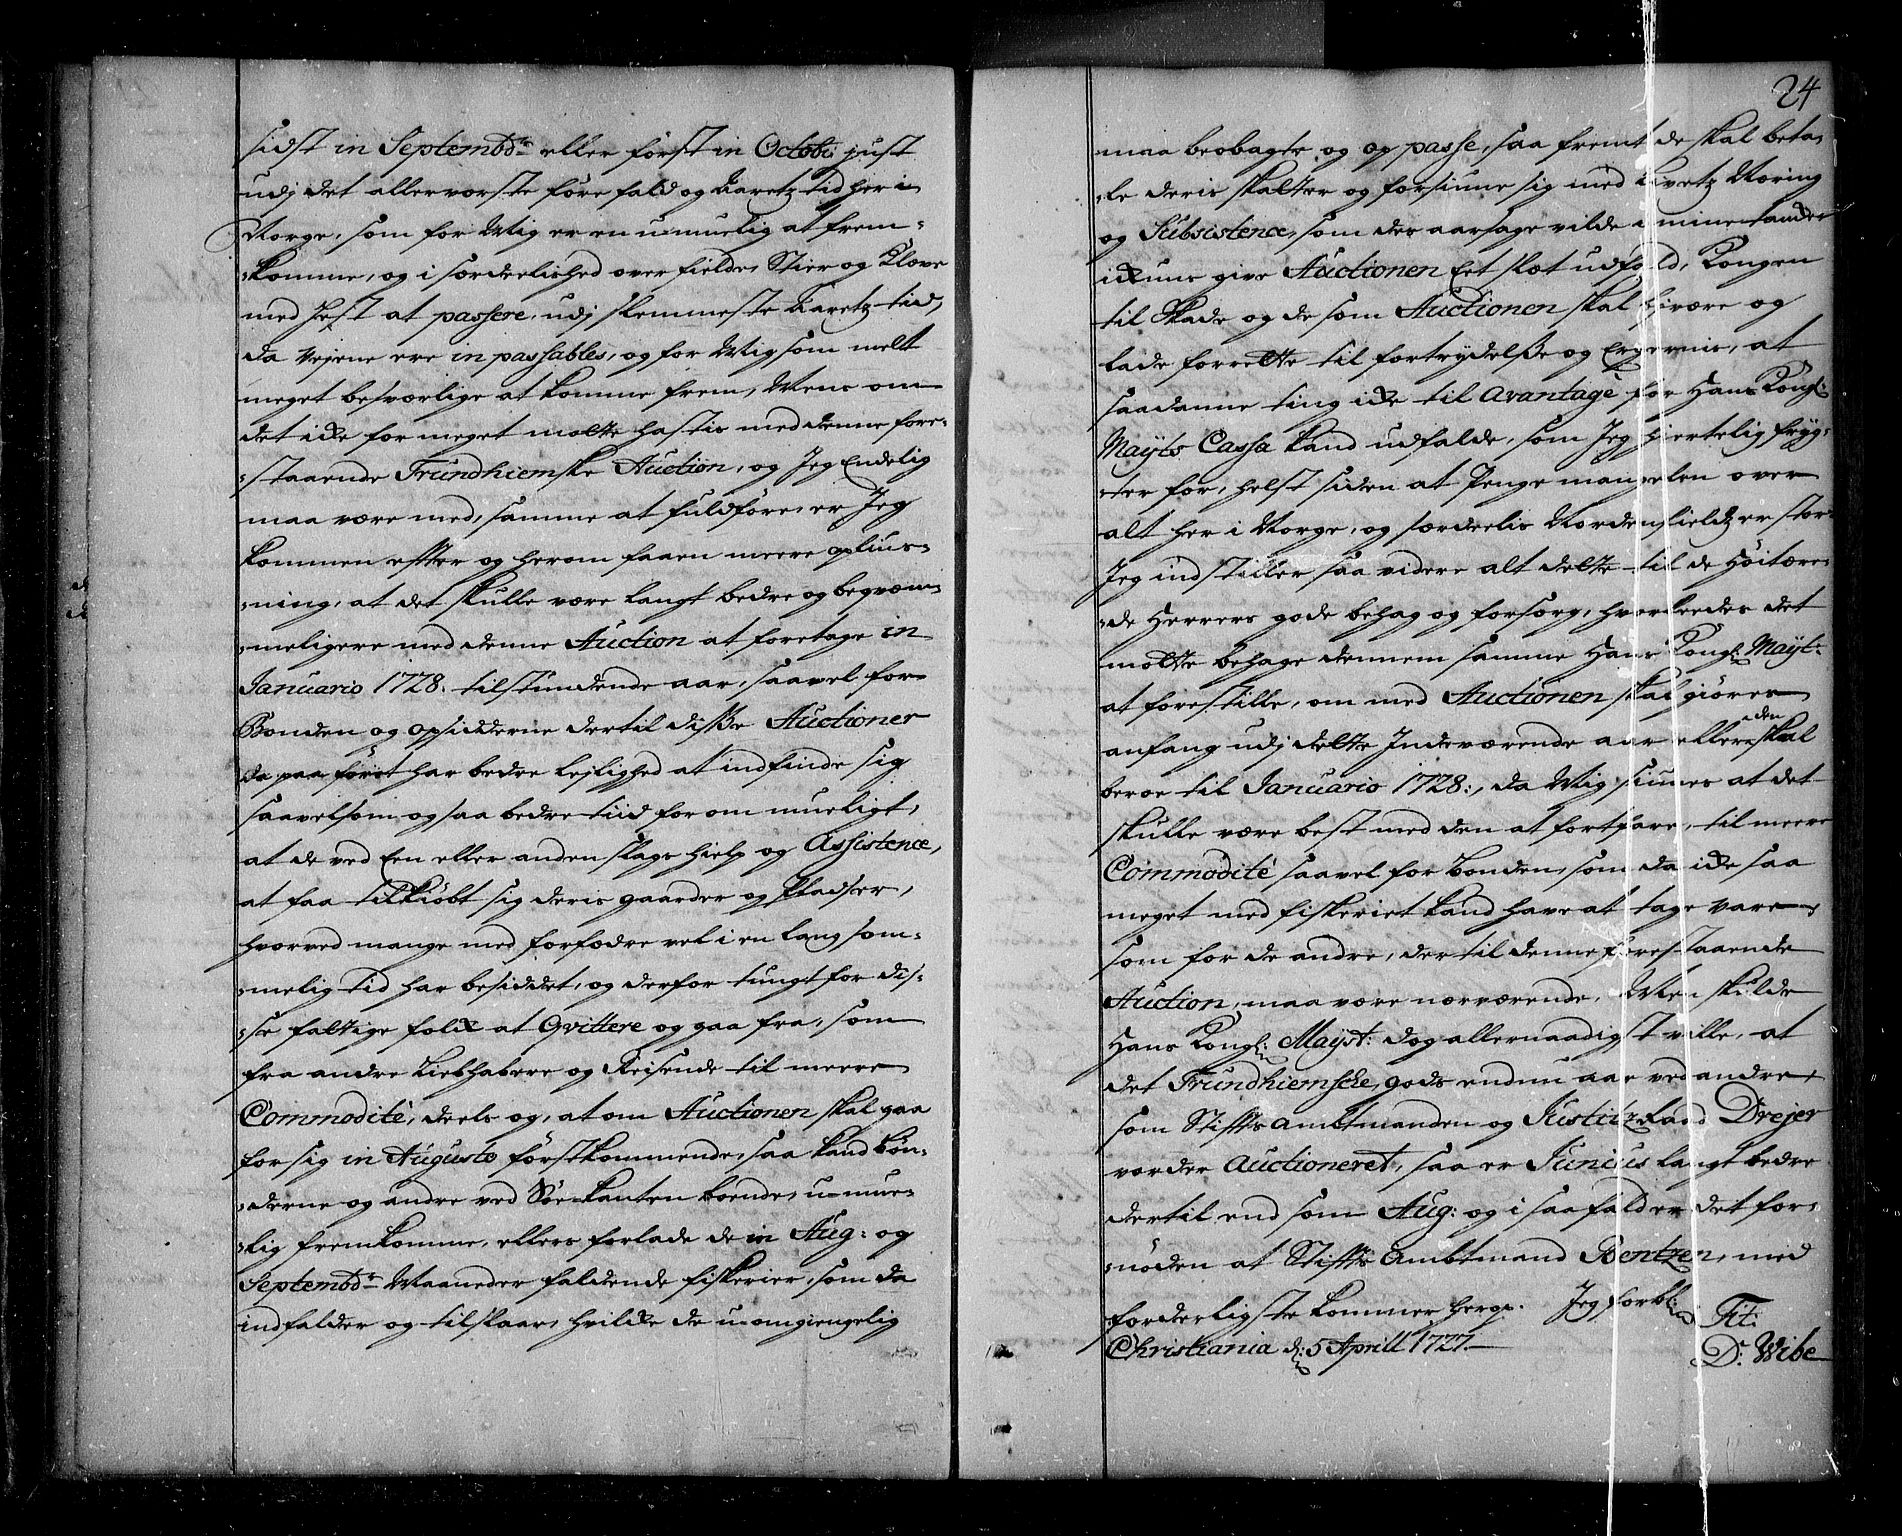 sidst in Septembd: eller først in Octob: just
udj det allerværste føre fald og Aaretz tid her i
Norge, som for Mig er en u-muelig at frem-
komme, og i særdeelished over fielde, Stier og Klæve
med Hest at passere, udj slemmeste Aaretz tid,
da Vejene ere in passables, og for Mig som melt
meget besværlige at komme frem, Mens om
det icke for meget motte hastis med denne fore-
staaende Trundhiemske Auction, og Jeg Endelig
maa være med, samme at fuldføre, er Jeg
kommen effter og herom faaen meere oplius-
ning, at det skulle være langt bedre og beqvem-
meligere med denne Auction at foretage in
Januario 1728. tilstundende aar, saavel for
Bonden og opsidderne dertil disße Auctioner
da paa føret har bedre lejlighed at indfinde sig
saavelsom og saa bedre tiid for om mueligt,
at de ved Een eller anden slags hielp og Assistence,
at faa tilkiøbt sig deris gaarder og Pladser,
hvorved mange med forfædre vel i en lang som-
melig tid har besiddet, og derfor tungt for dis-
se fattige folck at Qvittere og gaa fra, som
fra andre Liebhabere og Reisende til meere
Commodité, deels og, at om Auctionen skal gaa
for sig in Augusto førstkommende, saa kand bøn-
derne og andre ved Søe-kanten boende, u-mue-
lig fremkomme, ellers forlade de in Aug: og
Septembd: Maaneder faldende fiskerier, som da
indfalder og tilslaar, hvilcke de u-omgiengelig
24
maa beobagte og og passe, saa fremt de skal beta-
le deris skatter og forsiune sig med Livetz Næring
og Subsistence, som des aarsage vilde i mine tancker
ickuns give Auctionen Eet slæt udfald, Kongen
til Skade og de som Auctionen skal hivære og
lade forrette til fortrydelße og Ergernis, at
saadanne ting icke til Avantage for Hans Kongl:
Mayts Cassa kand udfalde, som Jeg hiertelig fryg-
ter for, helst siden at Penge mangelen over
alt her i Norge, og særdeelis Nordenfieldz er stor
Jeg indstiller saa videre alt dette til de Høitære-
de Herrers gode behag og forsorg, hvorleedes det
motte behage dennem samme Hans Kongl: Mayt:
at forestille, om med Auctionen skal giøres
anfang udj dette Indeværende aar eller den skal
beroe til Januario 1728:, da Mig siunes at det
skulle være best med den at fortfare, til meere
Commodité saavel for bonden, som da icke saa
meget med fiskeriet kand have at tage vare,
som for de andre, der til denne forestaaende
Auction, maa være nærværende. Men skulde
Hans Kongl: Mayst: dog allernaadigst ville, at
det Trundhiemsche gods endnu aar ved andre,
som Stiffts ambtmanden og Justitz Raad Drejer
vorder Auctioneret, saa er Junius langt bedre
dertil end som Aug: og i saafald er det for-
nøden at Stiffts Ambtmand Bentzen, med
forderligste kommer herop. Jeg forbl: Tit:
Christiania d: 5 Aprill 1727. D: Wibe